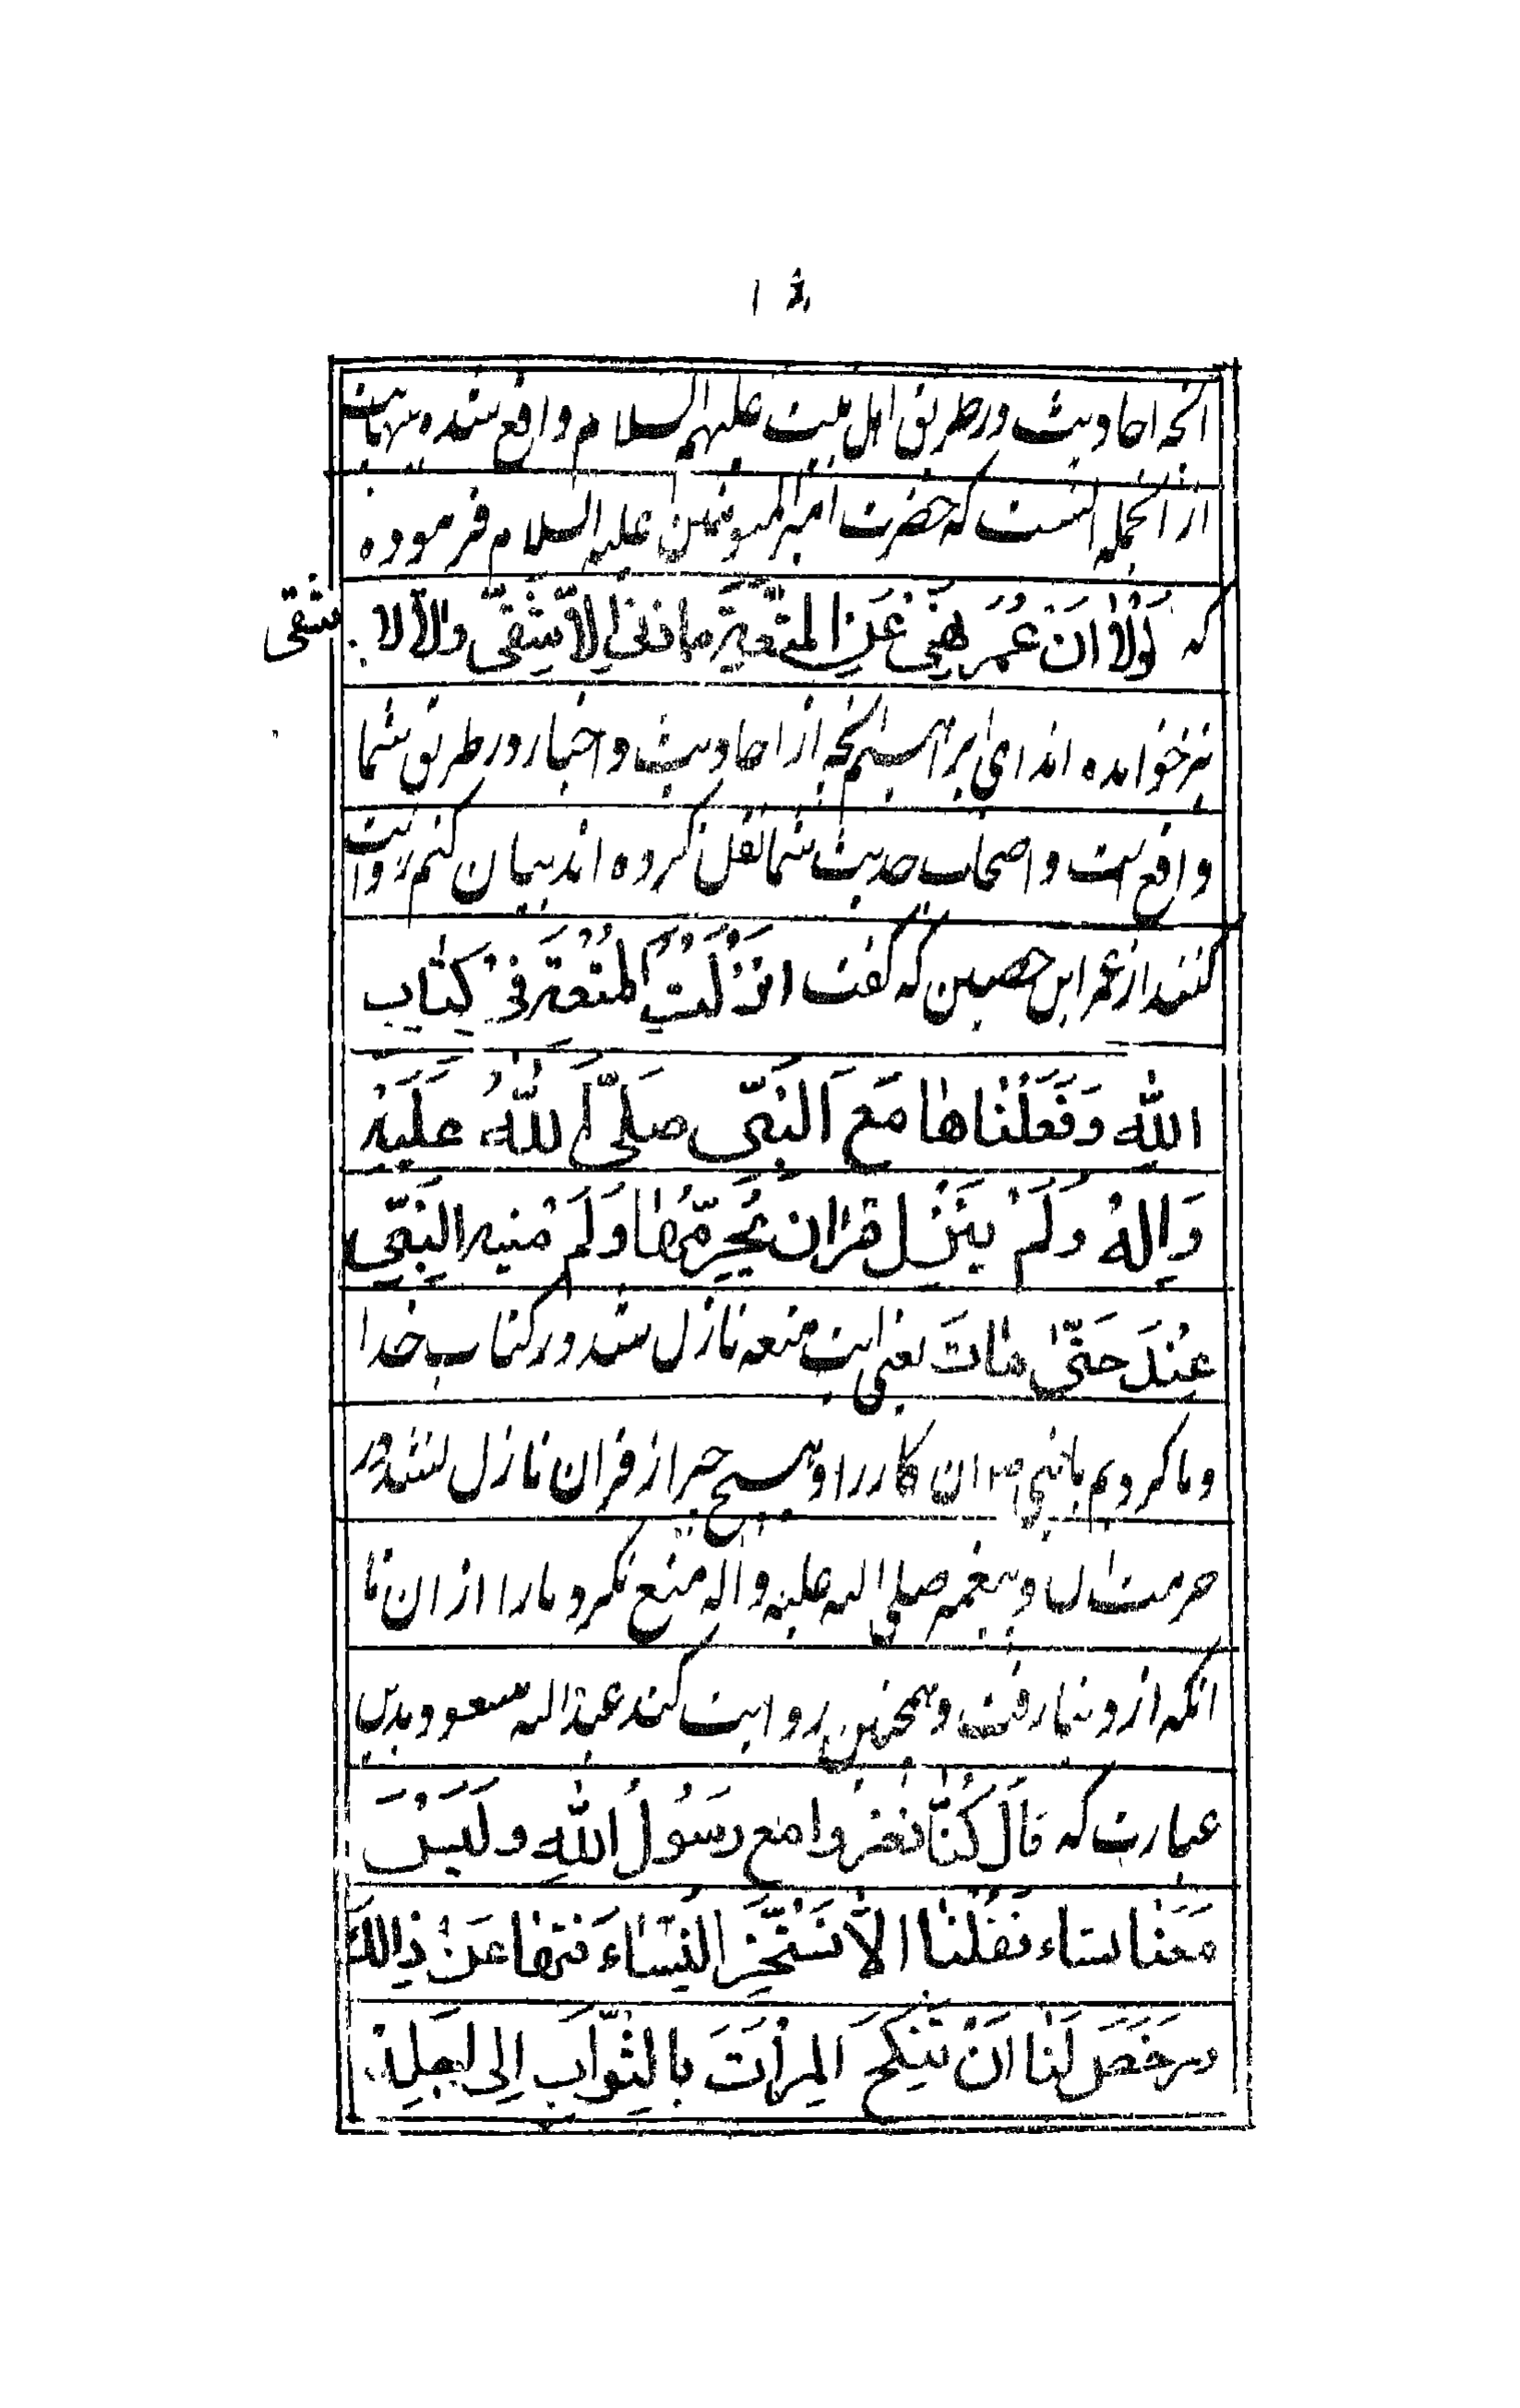 انچه احادیث در طریق اهل بیت علیهم السلام واقع شده بی نهایت
از انجمله انست که حضرت امیر المومنین علیه السلام فرموده
که لَوْلا اَنَّ عُمَر نَهىٰ عَنِ المُتْعَةِ ما زنى اِلاّ شَقىّ والا لا
شقی
نیز خوانده اند ای ابراهیم انچه از احادیث و اخبار در طریق شما
واقع است و اصحاب حدیث شما نقل کرده اند بیان کنم روایت
کنند از عمر ابن حصین که گفت انزلَتِ المُتْعَة فی کِتاب
اللّٰهِ وَفَعَلْناها مَعَ النَبّى صَلَّى اللّٰهُ عَلَیْهِ
وَاٰلِهْ وَلَمْ یَنْزِل قران یُحَرِّمُها وَلَمْ ینه النَبّى
عِنْدَ حَتّىٰ ماتَ یعنی ایت متعه نازل شد در کتاب خدا
و ما کردیم با نبی ص ان کار را و هیچ چیز از قران نازل نشد در
حرمت ان و پیغمبر صلی الله علیه و اله منع نکرد ما را از ان تا
انکه از دنیا رفت و همچنین روایت کند عبد الله مسعود بدین
عبارت که قالَ کُنّا نغزوا مع رَسُولُ اللّٰهِ و لَیْسَ
مَعَنا نساء فَقُلْنا اِلاّ نَسْتَحِز النِساءَ فنهٰا عَنْ ذٰالِكَ
و رَخَّصَ لَنا اَنْ نَنْکِحَ المِرْاَتَ بِالثِّوابَ اِلى اَجَلِهْ